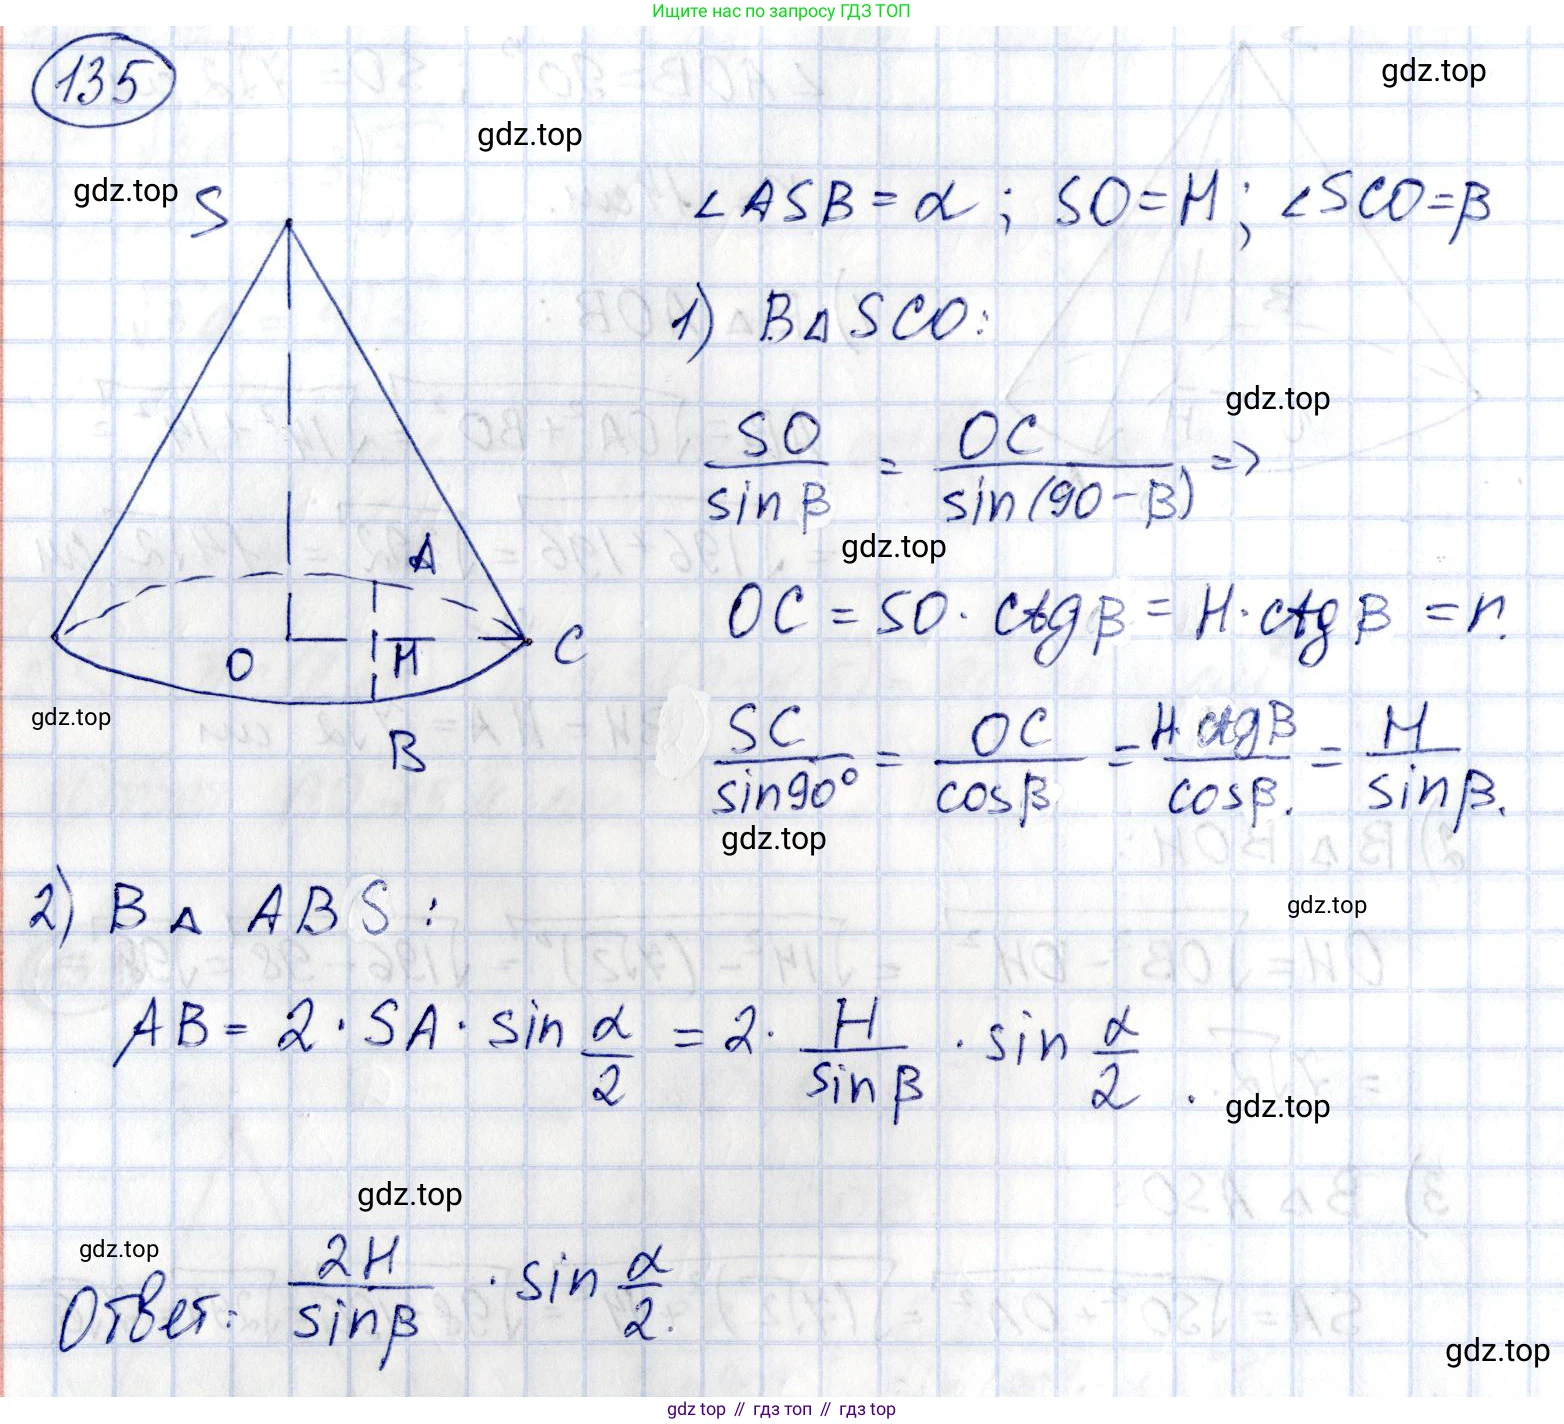 Ищите нас по запросу ГДЗ ТОП
135
gdz.top
gdz.top
gdz.top
S
∠ASB = α ; SO = H ; ∠SCO = β
1) В △ SCO:
gdz.top
SO/sin β = OC/sin(90 - β) =>
gdz.top
A
OC = SO · ctg β = H · ctg β = r.
O
H
C
gdz.top
B
SC/sin 90° = OC/cos β = H ctg β/cos β. = H/sin β.
gdz.top
2) В △ ABS :
gdz.top
AB = 2 · SA · sin α/2 = 2 · H/sin β · sin α/2 .
gdz.top
gdz.top
gdz.top
Ответ: 2H/sin β · sin α/2.
gdz.top
gdz top // гдз топ // гдз top